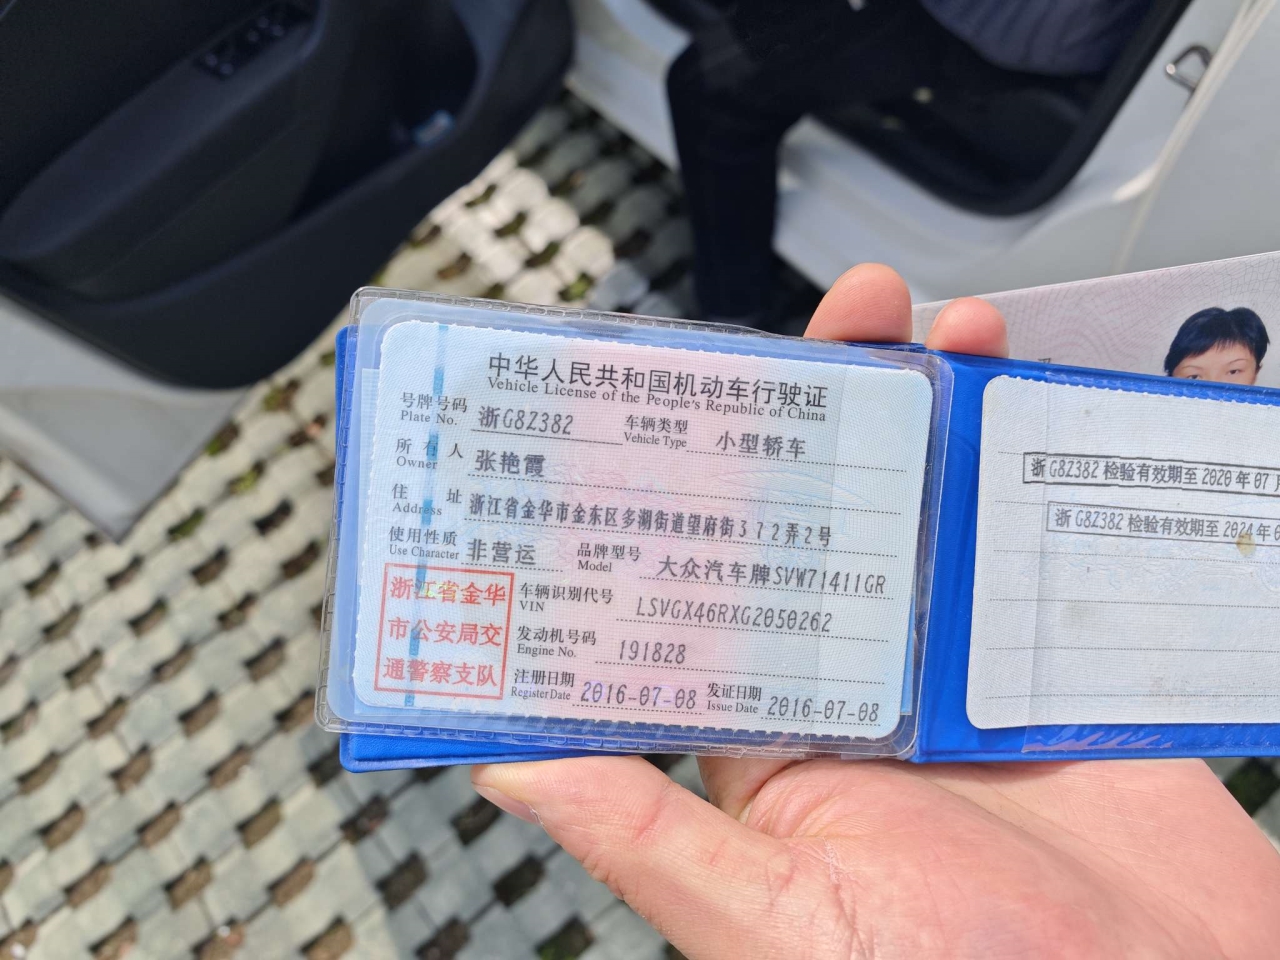 中华人民共和国机动车行驶证
Vehicle License of the People's Republic of China
号牌号码 浙G8Z382 车辆类型 小型轿车
Plate No. Vehicle Type
所有人 张艳霞
Owner
住址 浙江省金华市金东区多湖街道望府街372弄2号
Address
使用性质 非营运 品牌型号 大众汽车牌SVW71411GR
Use Character Model
浙江省金华
市公安局交
通警察支队
车辆识别代号 LSVGX46RXG2050262
VIN
发动机号码 191828
Engine No.
注册日期 2016-07-08 发证日期 2016-07-08
Register Date Issue Date
浙G8Z382 检验有效期至 2020 年 07 月
浙G8Z382 检验有效期至 2024 年